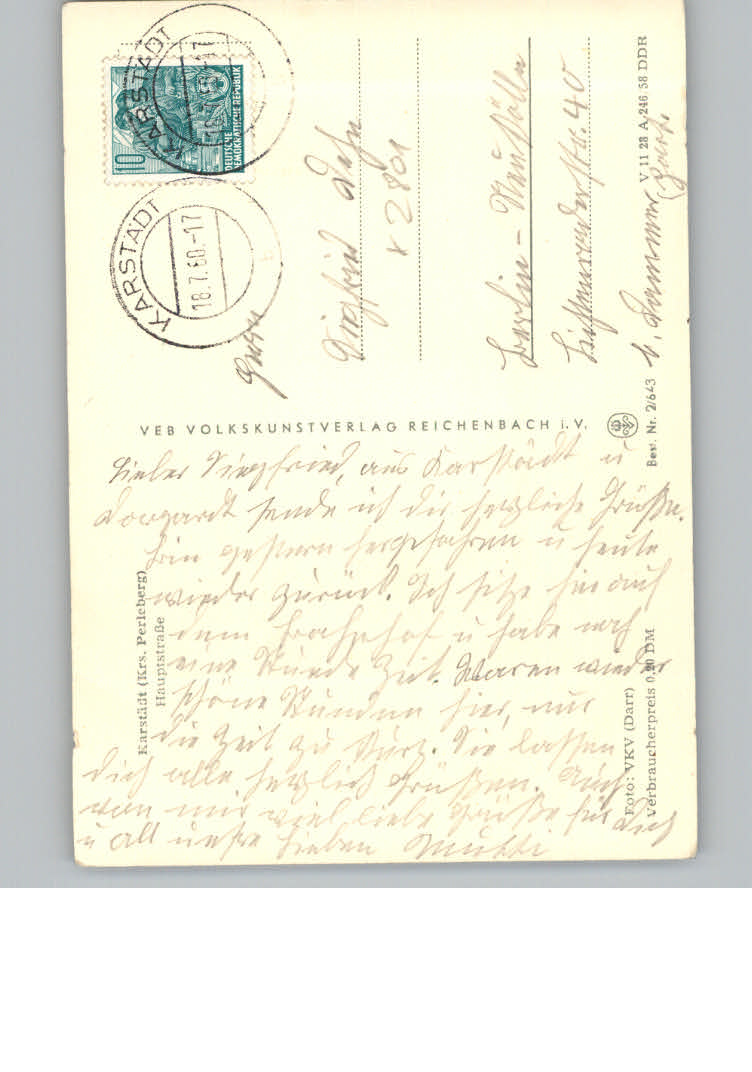 Lieber Siegfried, aus Karstädt u
sende ich dir herzliche Grüße.
Bin gestern hergefahren u heute
wieder zurück. Ich sitze hier auf
dem Bahnhof u habe noch
eine Stunde Zeit. Waren wieder
schöne Stunden hier, nur
die Zeit zu kurz. Sie lassen
dich alle herzlich Grüßen. Auch
von mir viel liebe Grüße für dich
u all unsre Lieben Mutti
VEB VOLKSKUNSTVERLAG REICHENBACH i. V.
Karstädt (Krs. Perleberg)
Hauptstraße
Foto: VKV (Darr)
Verbraucherpreis 0,20 DM
KARSTÄDT
18.7.60.-17
KARSTÄDT
10
DEUTSCHE
DEMOKRATISCHE REPUBLIK
Herrn
Siegfried
Berlin - Neukölln
40
b.
Best. Nr. 2/643
V 11 28 A 246 58 DDR